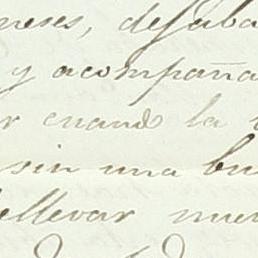 neses, desaba
y acompaña
r cuando la
sin una bu
ellevar nue